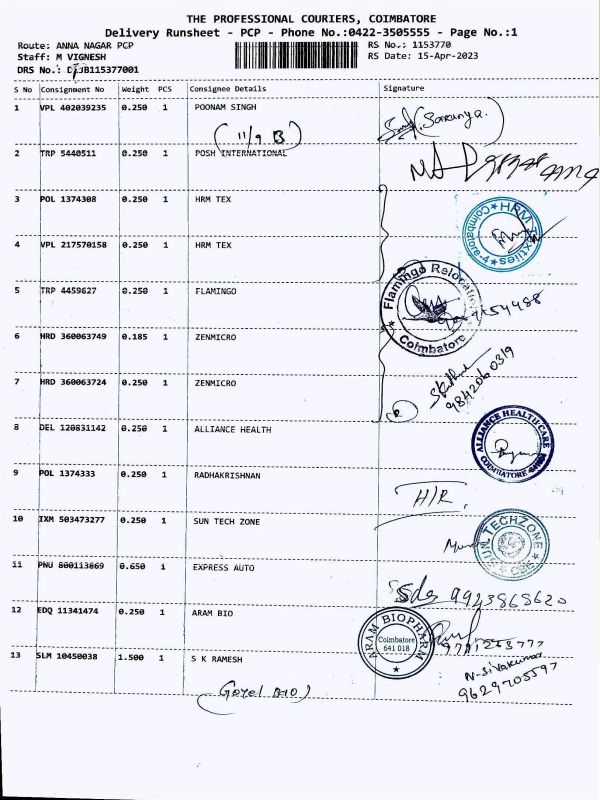 THE PROFESSIONAL COURIERS, COIMBATORE
Delivery Runsheet - PCP - Phone No.:0422-3505555 - Page No.:1
Route: ANNA NAGAR PCP RS No.: 1153770
Staff: M VIGNESH RS Date: 15-Apr-2023
DRS No.:
S No Consignment No Weight PCS Consignee Details Signature
1 VPL 402039235 0.250 1 POONAM SINGH
(Saranya.)
(11/9 B)
2 TRP 5440511 0.250 1 POSH INTERNATIONAL
3 POL 1374308 0.250 1 HRM TEX
HRM Textiles
Coimbatore-4
4 VPL 217570158 0.250 1 HRM TEX
5 TRP 4459627 0.250 1 FLAMINGO
Flamingo
Coimbatore
6 HRD 360063749 0.185 1 ZENMICRO
9842060319
7 HRD 360063724 0.250 1 ZENMICRO
8 DEL 120831142 0.250 1 ALLIANCE HEALTH
ALLIANCE HEALTH CARE
COIMBATORE
9 POL 1374333 0.250 1 RADHAKRISHNAN
H/R.
10 IXM 503473277 0.250 1 SUN TECH ZONE
TECHZONE
CBE
11 PNU 800113869 0.650 1 EXPRESS AUTO
9923868620
12 EDQ 11341474 0.250 1 ARAM BIO
ARAM BIOPHARM
Coimbatore
641 018
13 SLM 10450038 1.500 1 S K RAMESH
N-Sivakumar
9629705597